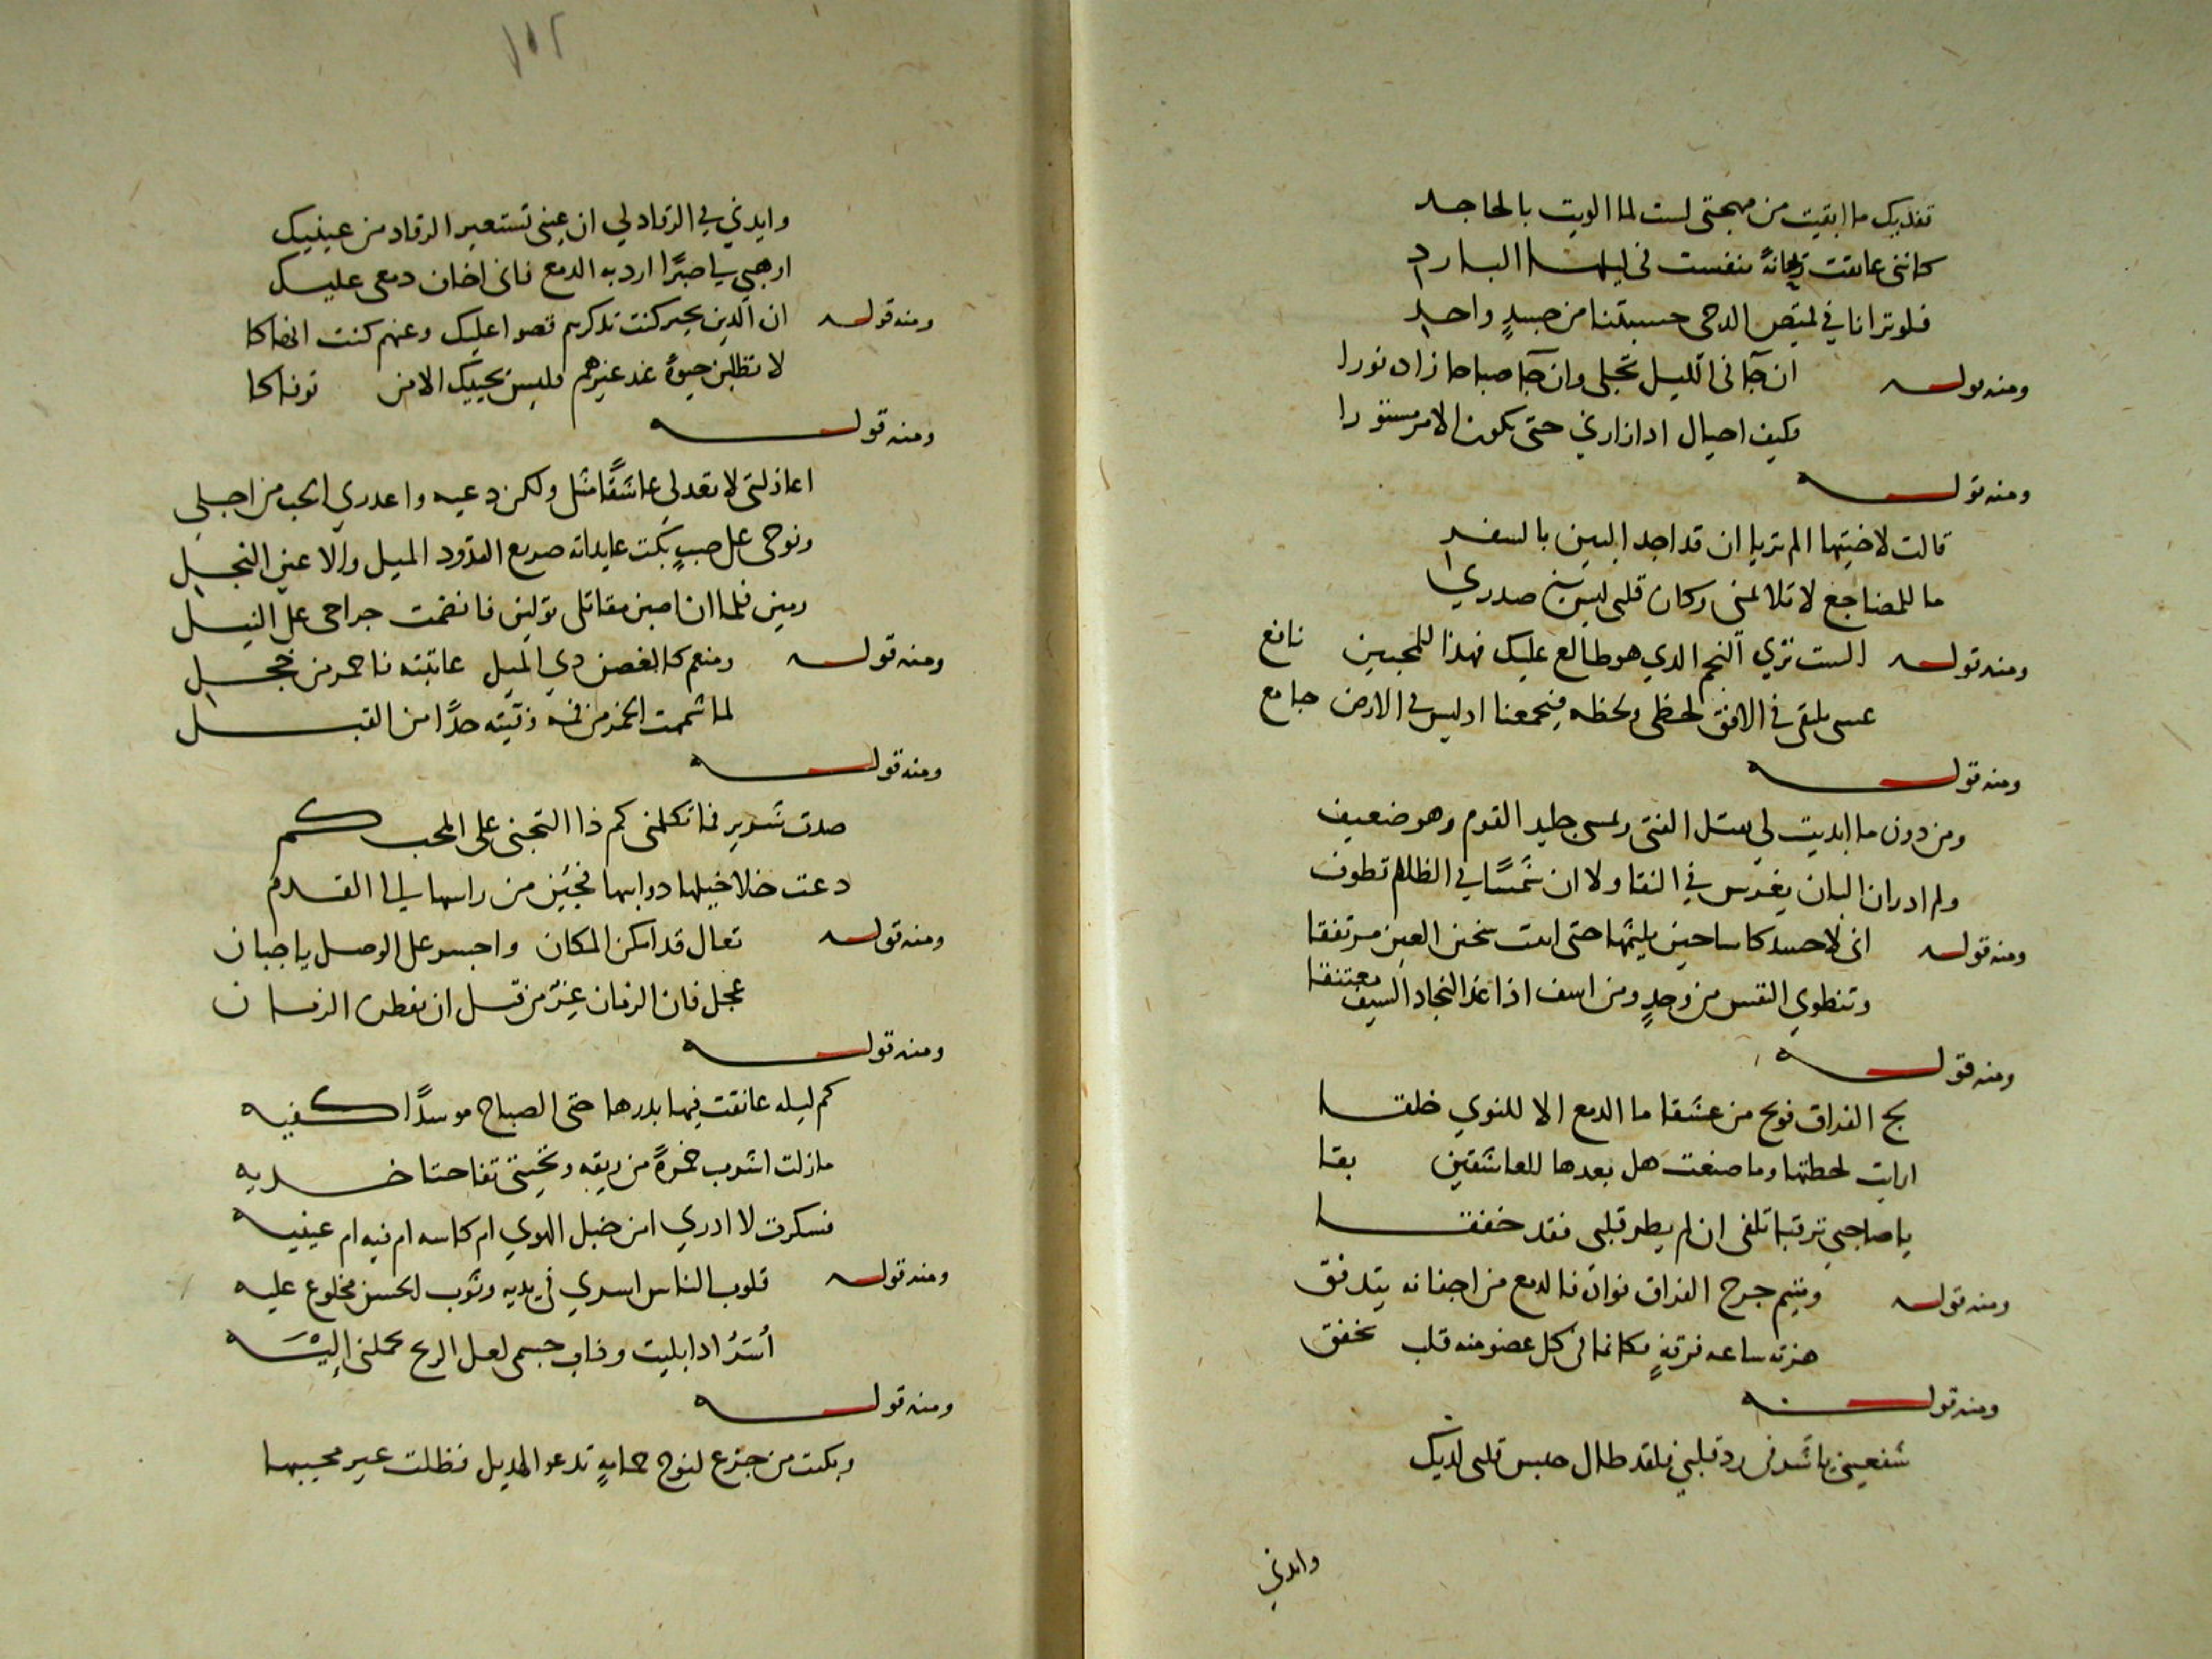 تفديك ما ابقيت من مهجتى لست لما اوليت بالجاحد
كاننى عانقت ريحانة تنفست فى ليلها البارد
فلو ترانا في قميص الدجى حسبتنا من جسدٍ واحد
ومنه قوله ان جآنى الليل تجلى وان جآ صباحا زاد نورا
فكيف احتال اذا زارني حتى يكون الامر مستورا
ومنه قوله
قالت لاختيها الم تريا ان قد اجد البين بالسفر
ما للمضاجع لا تلائمنى وكان قلبى ليس بين صدري
ومنه قوله الست تري النجم الذي هو طالع عليك فهذا للمحبين نافع
عسى يلتقى في الافق لحظى ولحظه فيجمعنا اذ ليس في الارض جامع
ومنه قوله
ومن دون ما ابديت لي يقتل الفتى ويمسى جليد القوم وهو ضعيف
ولم ادر ان البان يغرس في النقا ولا ان شمسًا في الظلام تطوف
ومنه قوله انى لاحسد كاسا حين يلثمها حتى ابيت سخين العين مرتفقا
وتنطوي النفس من وجدٍ ومن اسف اذا غدا النجاد السيف معتنقا
ومنه قوله
بح الفراق فويح من عشقا ما الدمع الا للنوي خلقا
ارايت لحظتها وما صنعت هل بعدها للعاشقين بقا
يا صاحبي ترقبا تلفى ان لم يطر قلبى فقد خفقا
ومنه قوله ومتيم جرح الفراق فواده فالدمع من اجفانه يتدفق
هزته ساعه فرقةٍ فكانما فى كل عضو منه قلب يخفق
ومنه قوله
شفعيني يا شر فى رد قلبي فلقد طال حبس قلبى لديك
وايذني
١٥٢
وايذني في الرقاد لي ان عينى تستعير الرقاد من عينيك
اوهبي لي صبرًا ارد به الدمع فانى اخاف دمعى عليك
ومنه قوله ان الذين بخير كنت تذكرهم قصوا عليك وعنهم كنت انهاكا
لا تطلبن حيوةً عند غيرهم فليس يحييك الا من توفاكا
ومنه قوله
اعاذلتى لا تعذلي عاشقًا مثلى ولكن دعيه واعذري الحب من اجلي
ونوحى على صبٍ بكت عايداته صريع القدود الميل والاعين النجل
رمين فلما ان اصبن مقاتلى تولين فانضمت جراحى على النبل
ومنه قوله ومنعم كالغصن ذي الميل عاتبته فاحمر من خجل
لما شممت الخمر من فمه وفيته حدًا من القبل
ومنه قوله
صدت شرير فما تكلمنى كم ذا التجنى على المحب كم
دعت خلاخيلها ذوايبها فجئن من راسها الى القدم
ومنه قوله تعال قد امكن المكان واجسر على الوصل يا جبان
عجل فان الزمان غر من قبل ان يفطن الزمان
ومنه قوله
كم ليله عانقت فيها بدرها حتى الصباح موسدًا كفيه
مازلت اشرب خمرةً من ريقه وتحيتى تفاحتا خديه
فسكرت لا ادري امن خبل الهوي ام كاسه ام فيه ام عينيه
ومنه قوله قلوب الناس اسري فى يديه وثوب الحسن مخلوع عليه
أسَرُّ اذا بليت وذاب جسمى لعل الريح تحملنى اليْه
ومنه قوله
وبكت من جزع لنوح حمامةٍ تدعو الهديل فظلت غير مجيبها